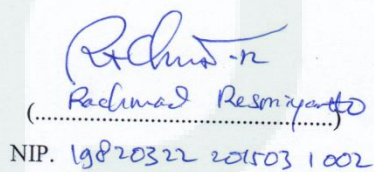 Rachmad Resmiyanto
(....................................................)
NIP. 19820322 201503 1 002